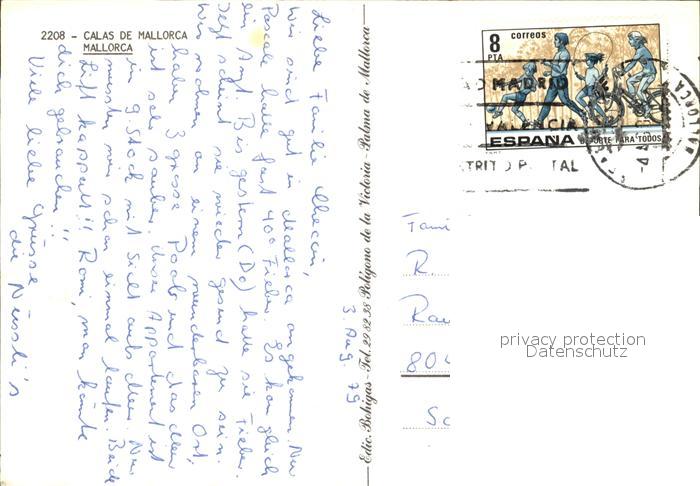 2208 - CALAS DE MALLORCA
MALLORCA
Liebe Familie
Wir sind gut in Mallorca angekommen. Nur
Pascale hatte fast 40° Fieber. Es kam gleich
ein Arzt. Bis gestern (Do) hatte sie Fieber.
Jetzt scheint sie wieder gesund zu sein.
Wir wohnen an einem wunderbaren Ort,
haben 3 grosse Pools und das Meer
ist sehr sauber. Unser Appartement ist
im 9. Stock mit Sicht aufs Meer. Nur
mussten wir schon einmal laufen. Beide
Lift kaputt!! Romi, man könnte
dich gebrauchen!!
Viele liebe Grüsse
die Nüssli's
3. Aug. 79
Edic. Bohigas - Tel. 22 82 33 Polígono de la Victoria - Palma de Mallorca
8 correos
PTA
MADRID
VALENCIA
ESPAÑA DEPORTE PARA TODOS
TRITO P TAL
Fami
R.
Rau
804
Sc
privacy protection
Datenschutz